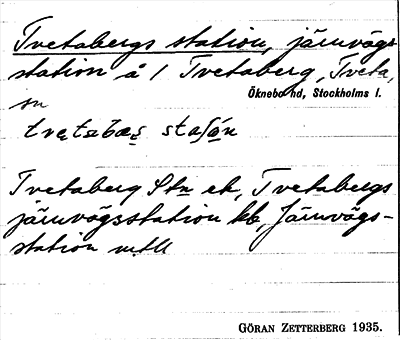 Tvetabergs station, järnvägs
station å 1 Tvetaberg, Tveta,
sn Öknebo hd, Stockholms l.
tvẹtabæṣ stašọ́n
Tvetaberg Stn ek, Tvetabergs
järnvägsstation kb, Järnvägs-
station mtll
GÖRAN ZETTERBERG 1935.